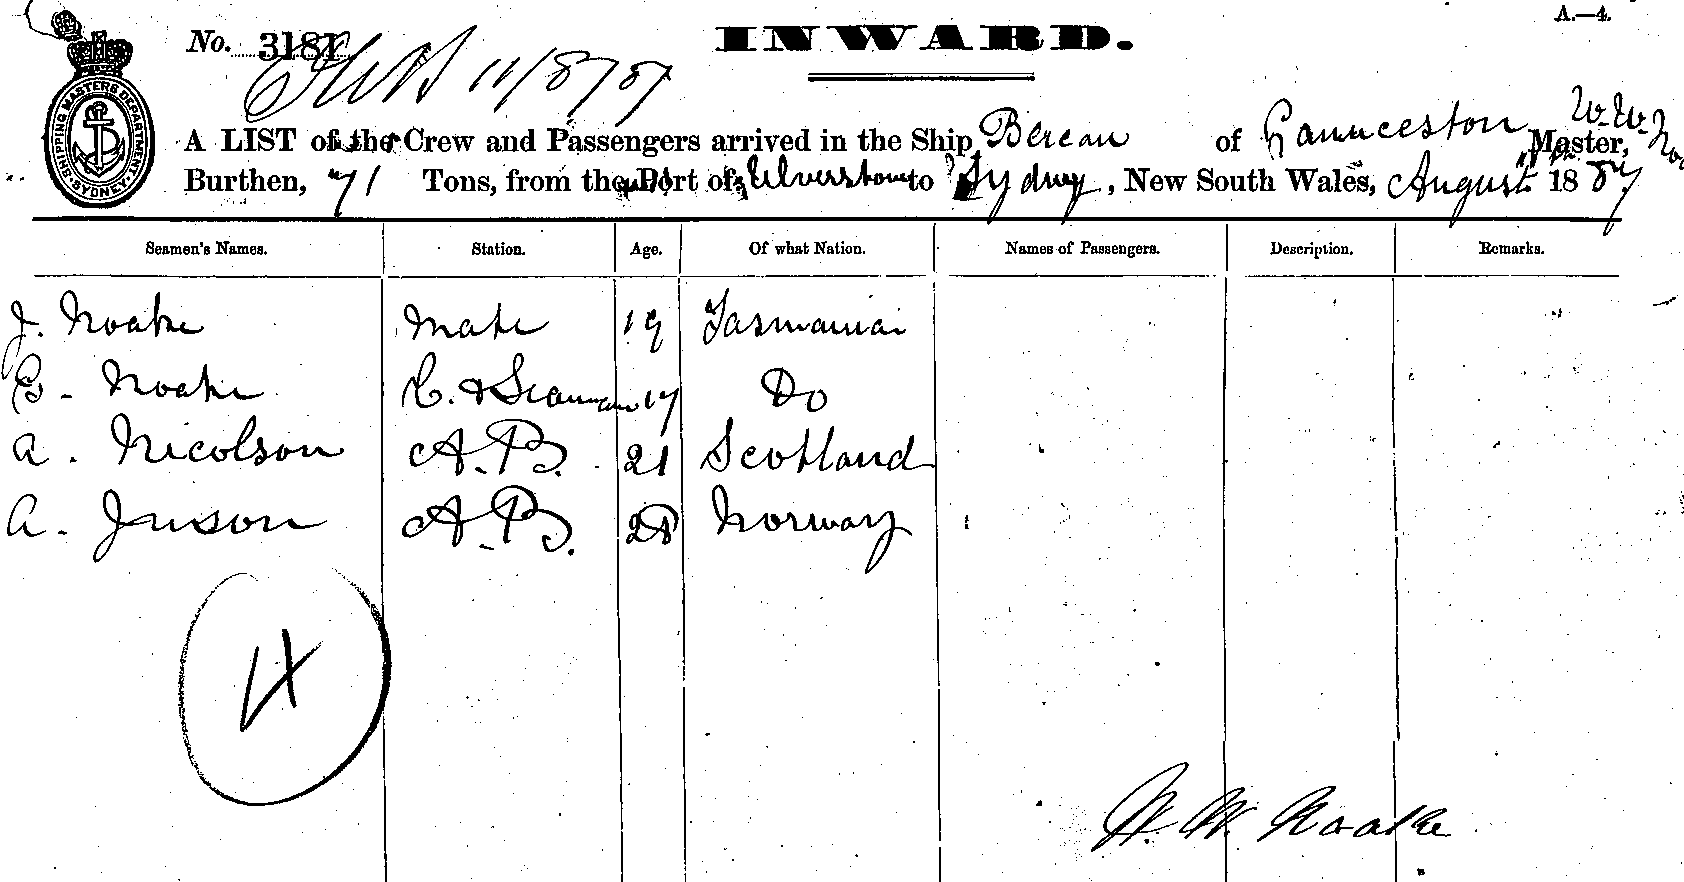 A.—4.
No. 3181
INWARD.
11/8/87
SHIPPING MASTERS DEPARTMENT. SYDNEY.
A LIST of the Crew and Passengers arrived in the Ship Berean of Launceston W. W. Master,
Burthen, 71 Tons, from the Port of Ulverstone to Sydney, New South Wales, August 11th 1887
Seamen's Names. Station. Age. Of what Nation. Names of Passengers. Description. Remarks.
J. Noake Mate 19 Tasmania
Noake C. & Seaman 17 Do
A. Nicolson A.B. 21 Scotland
A. Juson A.B. Norway
4
W. W. Noake